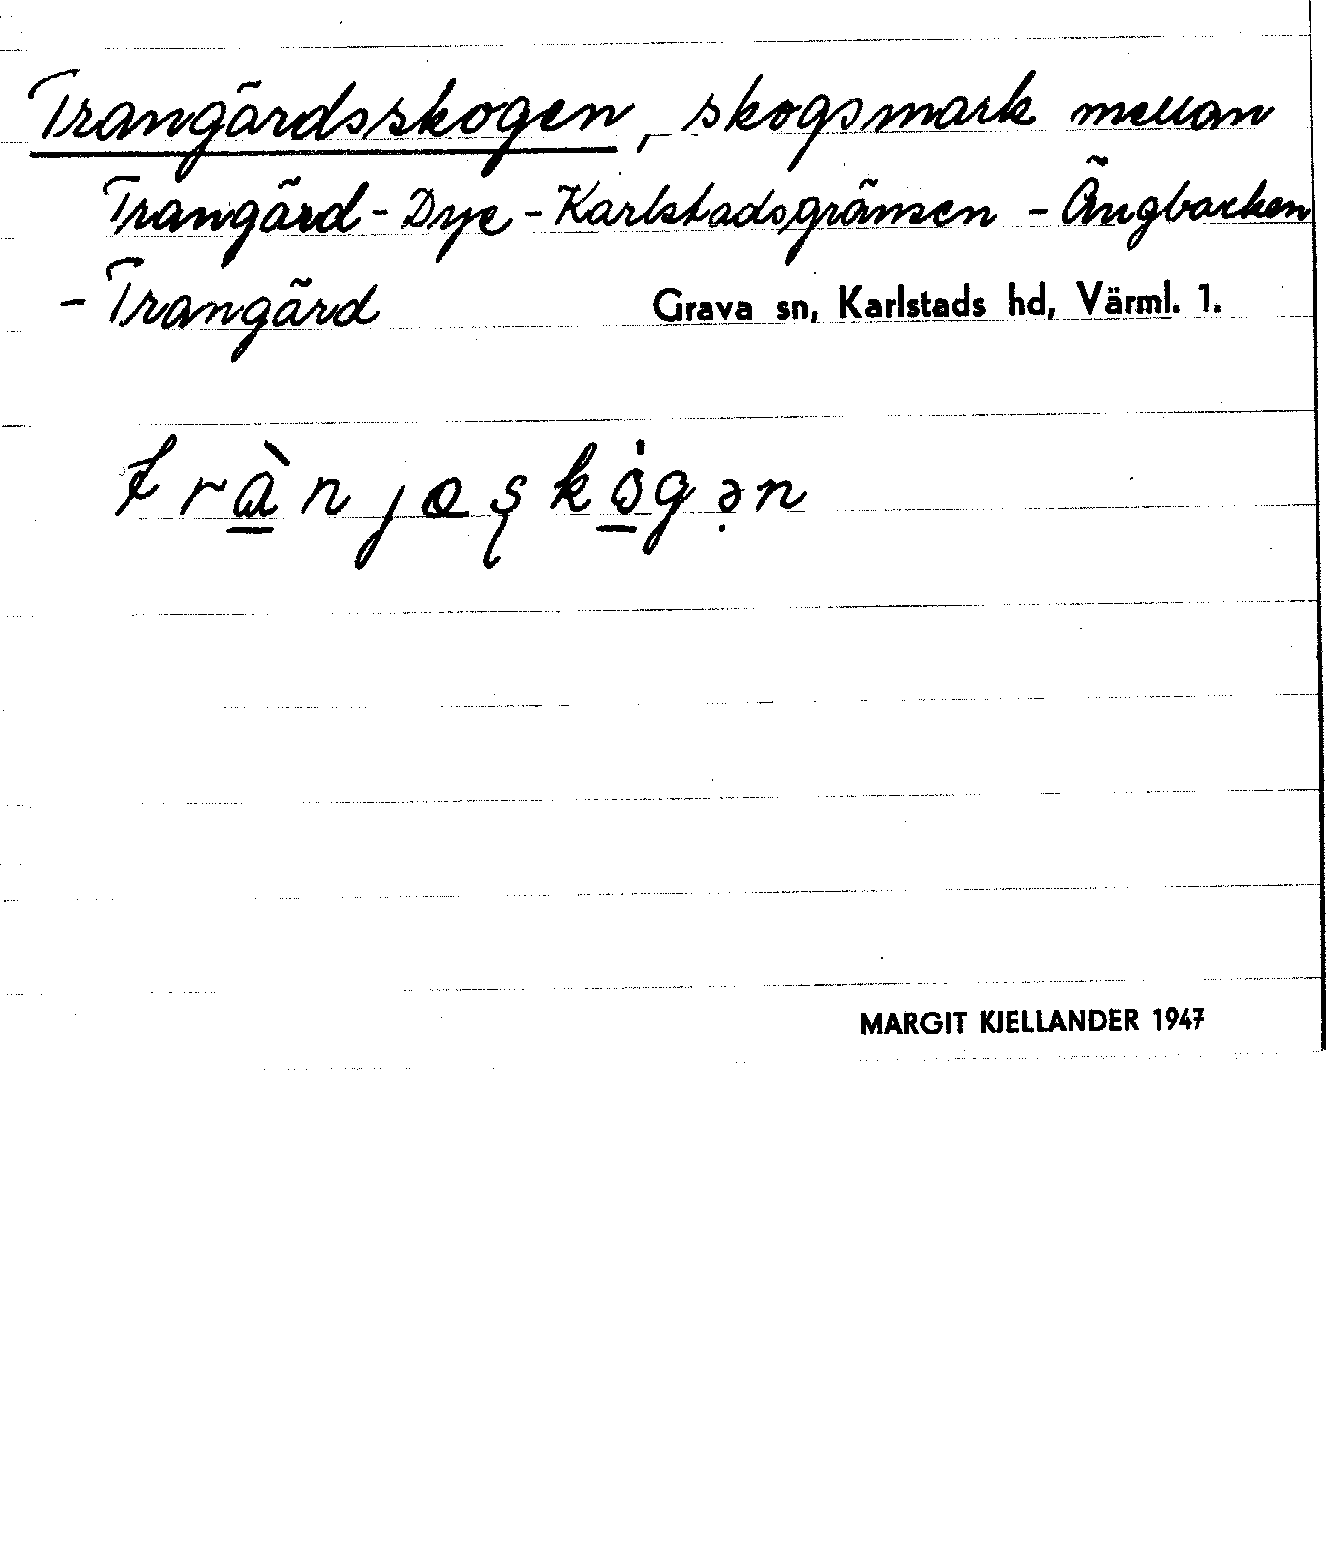 Trangärdsskogen, skogsmark mellan
Trangärd - Dye - Karlstadsgränsen - Ängbacken
- Trangärd Grava sn, Karlstads hd, Värml. 1.
trà̱njaʂko̱̍gə̣n
MARGIT KJELLANDER 1947